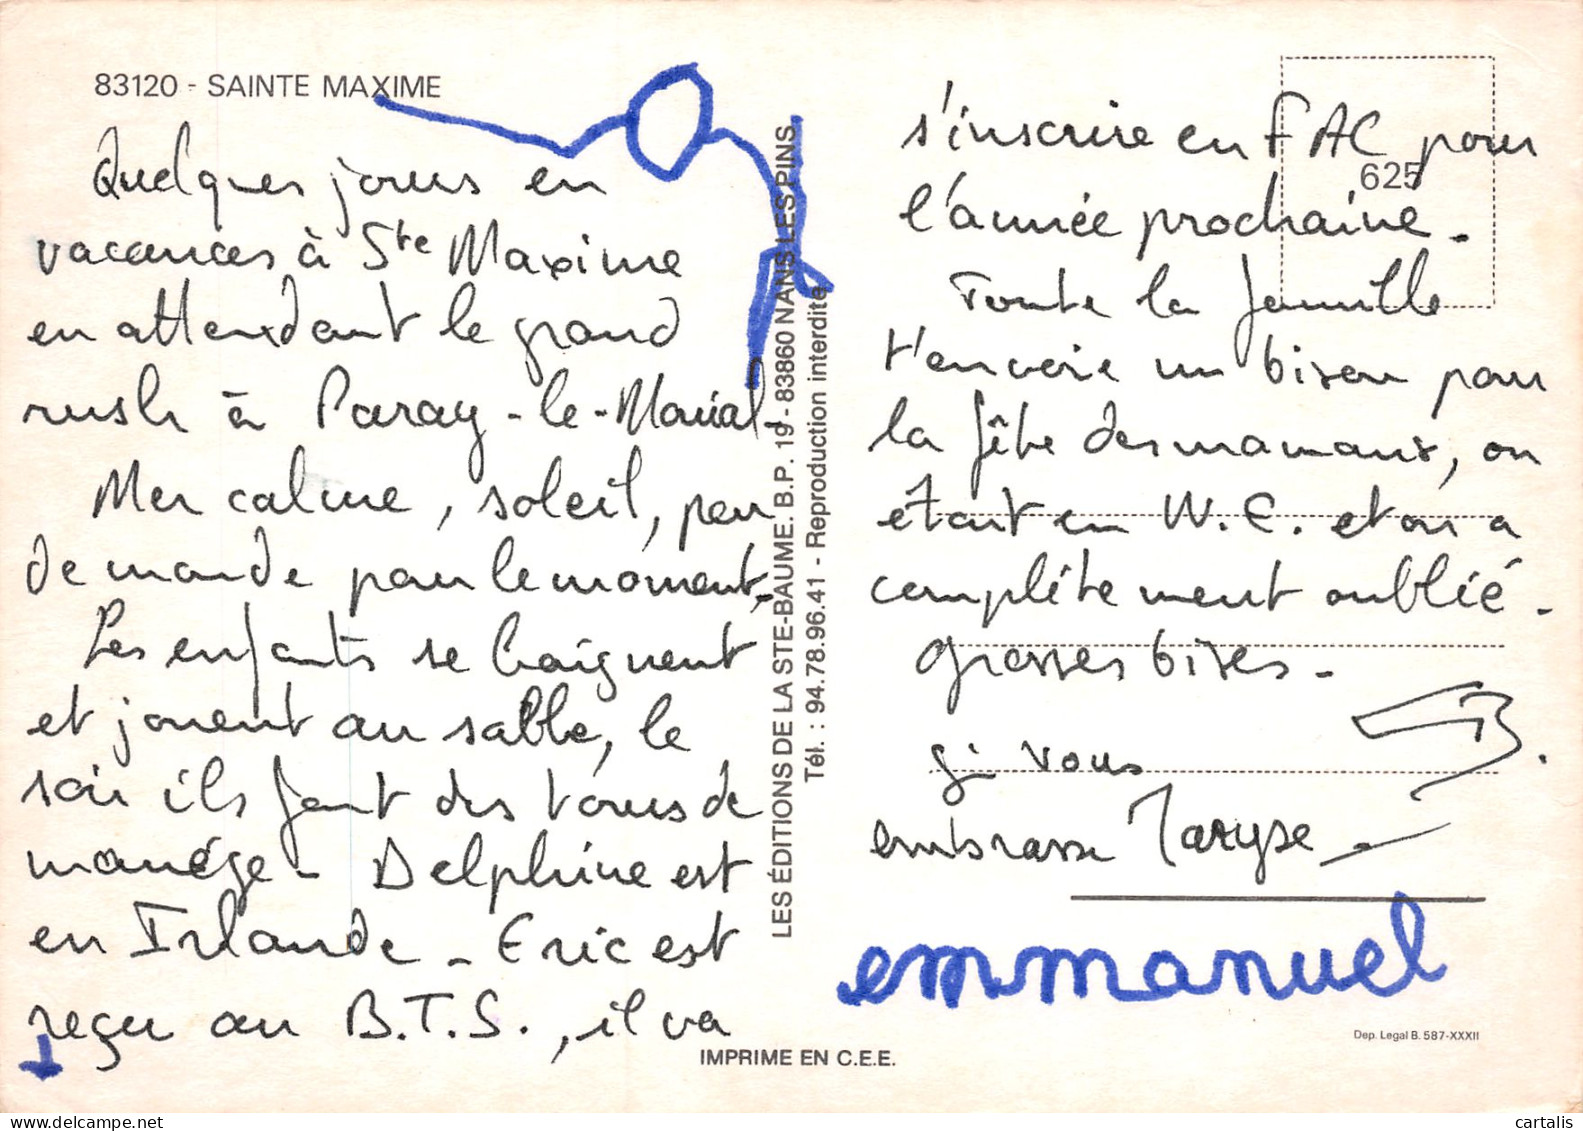 83120 - SAINTE MAXIME
Quelques jours en
vacances à Ste Maxime
en attendant le grand
rush à Paray-le-Monial.
Mer calme, soleil, peu
de monde pour le moment.
Les enfants se baignent
et jouent au sable, le
soir ils font des tours de
manége - Delphine est
en Irlande - Eric est
reçu au B.T.S., il va
LES ÉDITIONS DE LA STE-BAUME. B.P. 19 - 83860 NANS LES PINS
Tél. : 94.78.96.41 - Reproduction interdite
s'inscrire en FAC pour
l'année prochaine.
625
Toute la famille
t'envoie un bisou pour
la fête des mamans, on
était en W.E. et on a
complétement oublié.
grosses bises -
Gi vous
embrasse Maryse
emmanuel
Dep. Legal B. 587-XXXII
IMPRIME EN C.E.E.
cartalis